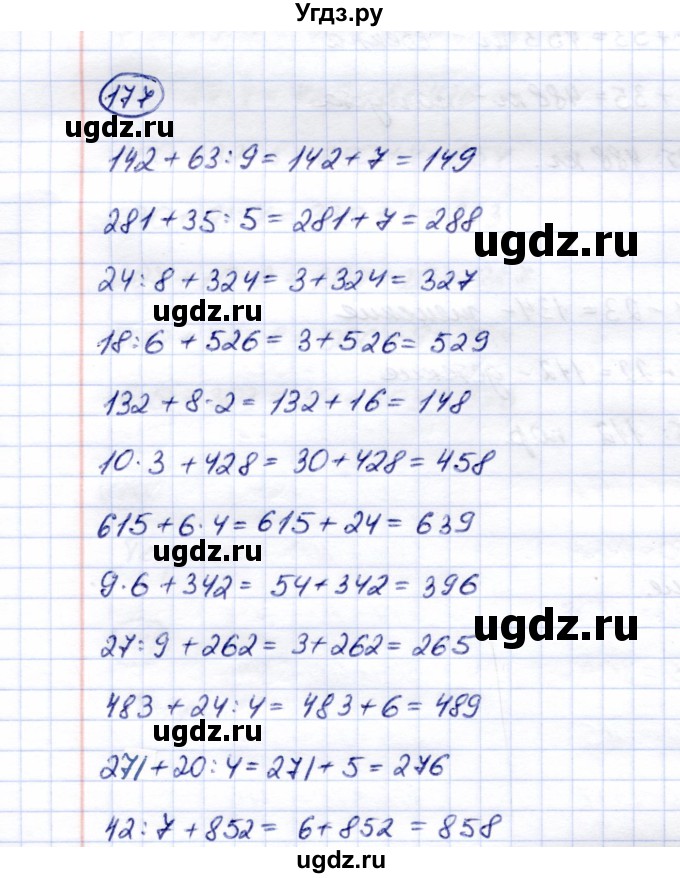 Угдз.ру
177
ugdz.ru
142 + 63 : 9 = 142 + 7 = 149
281 + 35 : 5 = 281 + 7 = 288
ugdz.ru
24 : 8 + 324 = 3 + 324 = 327
ugdz.ru
18 : 6 + 526 = 3 + 526 = 529
132 + 8 · 2 = 132 + 16 = 148
10 · 3 + 428 = 30 + 428 = 458
615 + 6 · 4 = 615 + 24 = 639
ugdz.ru
9 · 6 + 342 = 54 + 342 = 396
ugdz.ru
27 : 9 + 262 = 3 + 262 = 265
483 + 24 : 4 = 483 + 6 = 489
ugdz.ru
271 + 20 : 4 = 271 + 5 = 276
42 : 7 + 852 = 6 + 852 = 858
ugdz.ru